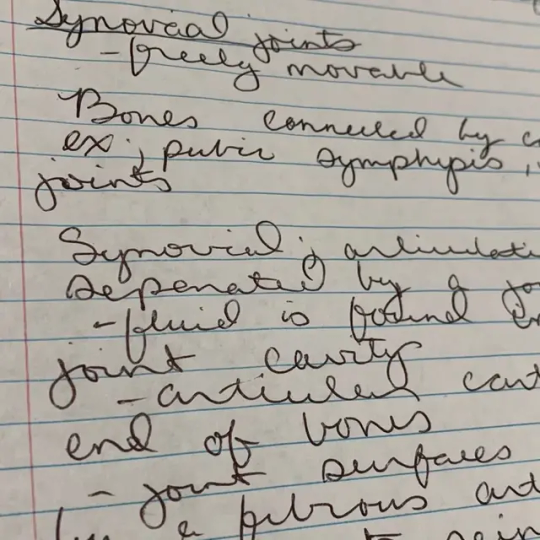 Synovial joints
- freely movable
Bones connected by
ex; pubic symphysis,
joints
Synovial; articulati
Seperated by a jo
- fluid is found in
joint cavity
- articuler cart
end of bones
- joint surfaces
a fibrous art